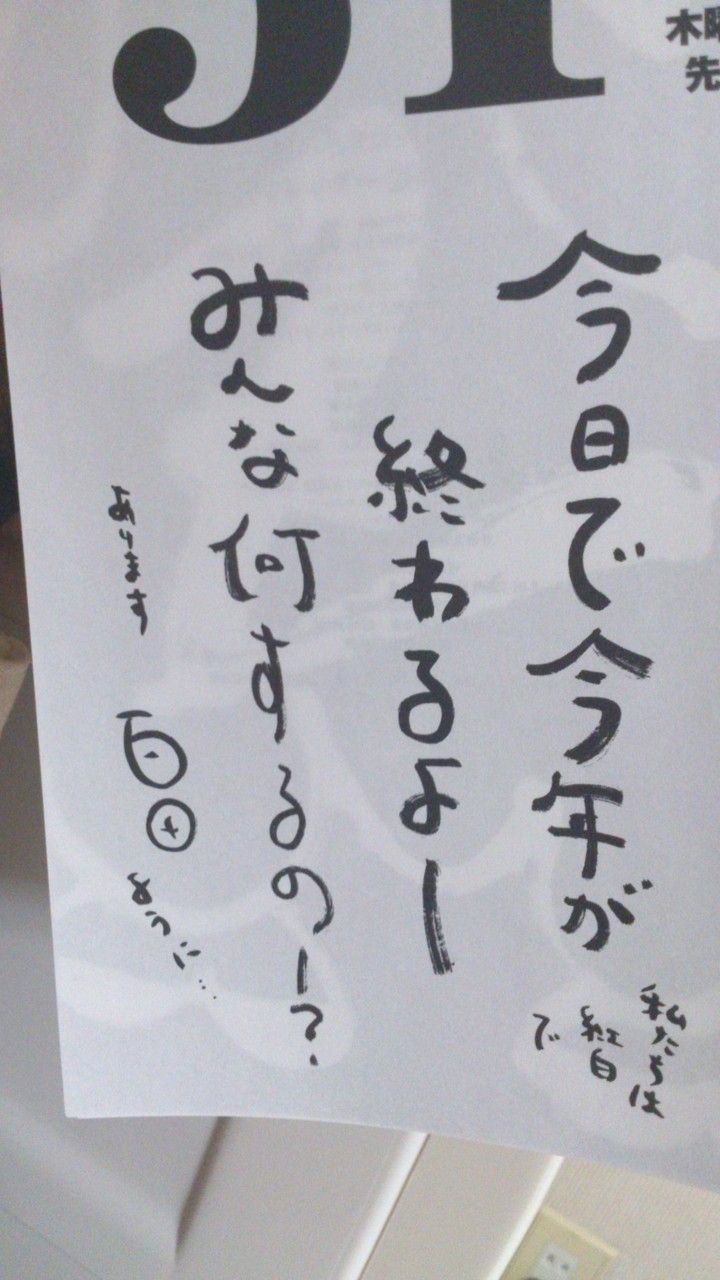 31
木曜
先
今日で今年が
終わるよー
みんな何するのー?
私たちは
紅白
で
あります
ように…